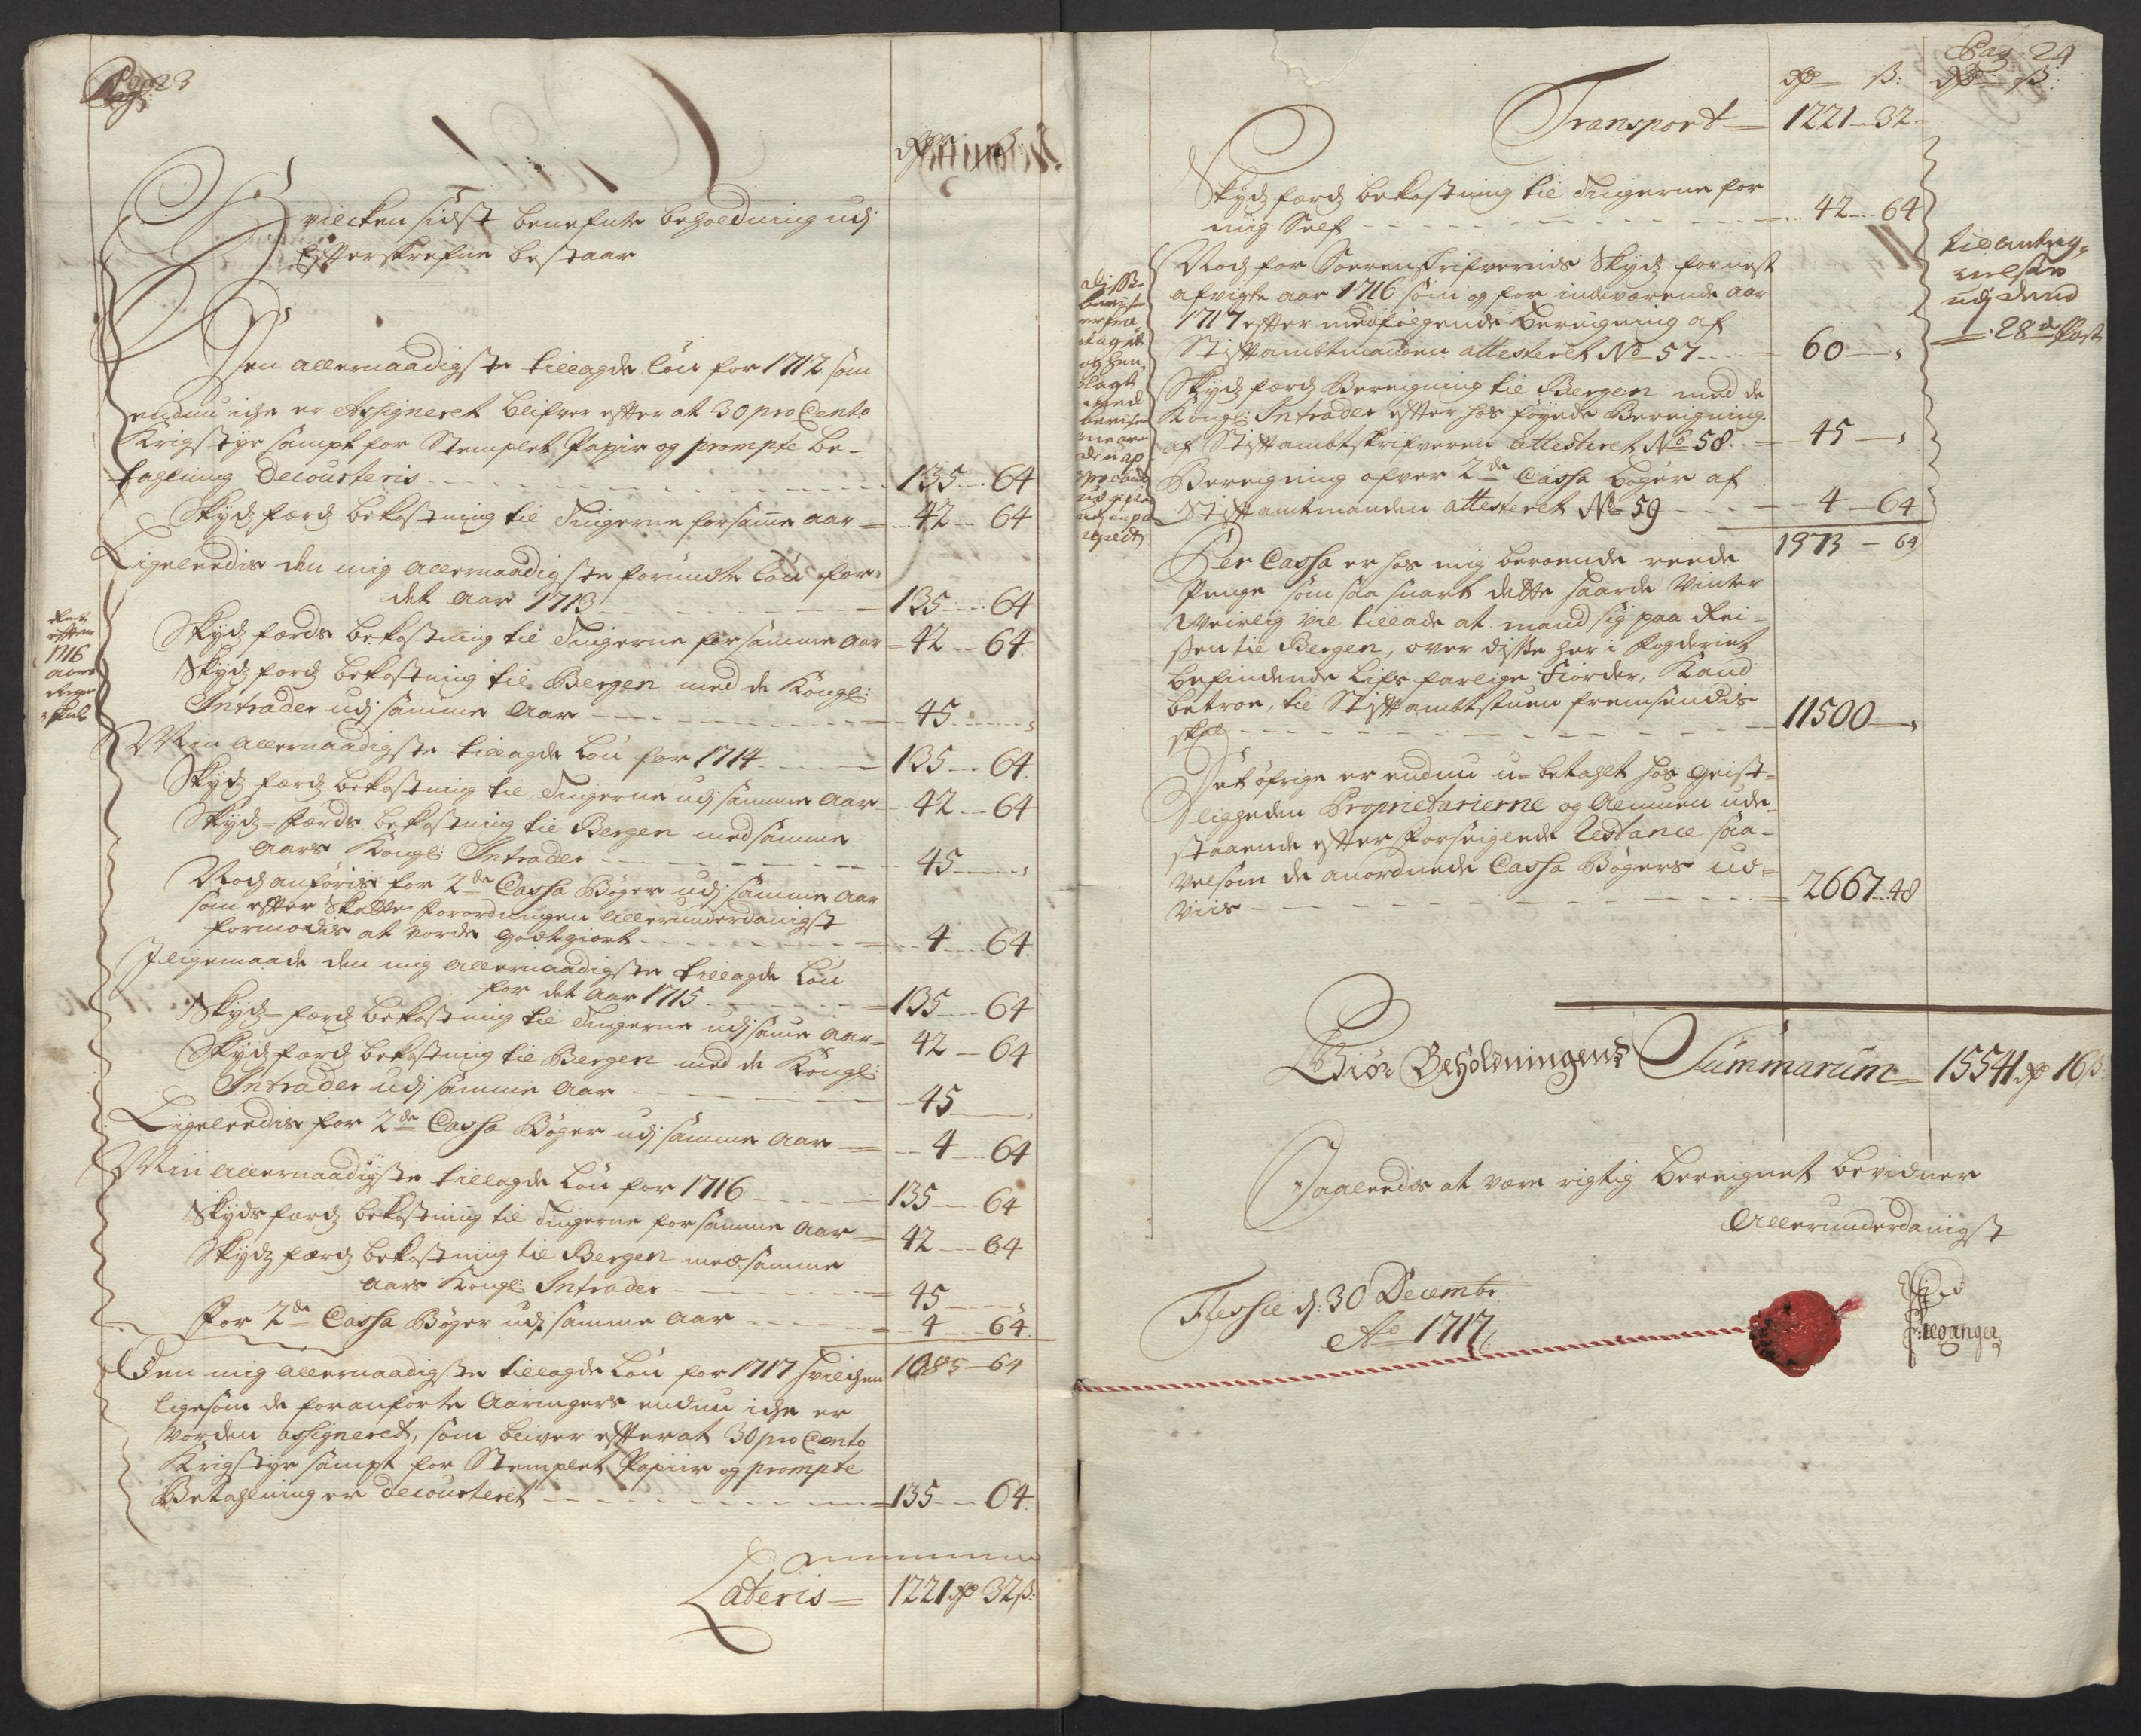 Pag: 23
Rdr ß:
Hvilcken sidst benefnte beholdning udj
Efterskrefne bestaar
Den allernaadigste tillagde Løn for 1712 som
endnu iche er Assigneret blifver efter at 30 pro Cento
Krigstyr sampt for Stemplet Papir og prompte be-
tahlning Decourteris 135 64
Skydsfærds bekostning til Tingerne for samme aar 42 64
Ligeleedis den mig allernaadigste forundte Løn for
det Aar 1713 135 64
Skydsfærds bekostning til Tingerne for samme aar 42 64
Skydsfærds bekostning til Bergen med de Kongl:
Intrader udj samme Aar 45
Min allernaadigste tillagde Løn for 1714 135 64
Skydsfærds bekostning til Tingerne udj samme Aar 42 64
Skyds-færds bekostning til Bergen med samme
Aars Kongl: Intrader 45
Noch anføris for 2de Cassa Bøger udj samme Aar
som efter Skatte forordningen allerunderdanigst
formodis at vorde godtgiort 4 64
J ligemaade den mig allernaadigste tillagde Løn
for det Aar 1715 135 64
Skyds-færds bekostning til Tingerne udj samme Aar 42 64
Skydsfærds bekostning til Bergen med de Kongl:
Intrader udj samme Aar 45
Ligeleedis for 2de Cassa Bøger udj samme Aar 4 64
Min allernaadigste tillagde Løn for 1716 135 64
Skydsfærds bekostning til Tingerne for samme Aar 42 64
Skydsfærds bekostning til Bergen med samme
Aars Kongl: Intrader 45
For 2de Cassa Bøger udj samme Aar 4 64
1085 64
Den mig allernaadigste tillagde Løn for 1717 hvilchen
ligesom de foranførte Aaringers endnu iche er
vorden assigneret, som bliver efter at 30 pro Cento
Krigstyr sampt for Stemplet Papiir og prompte
Betahlning er decourteret 135 64
Lateris 1221 Rdr 32 ß:
efter
1716
aars
Regen
skab
Pag: 24
Rdr ß: Rdr ß:
Transport 1221 32
Skydsfærds bekostning til Tingerne for
mig Self 42 64
Noch for Sorenskrifverens Skyds for nest
afvigte aar 1716 som og for indeværende aar
1717 efter medfølgende Beregning af
Stiftambtmanden attesteret No 57 60
Skydsfærds Beregning til Bergen med de
Kongl: Intrader efter hos føyede Beregning
af Stiftambtskrifveren attesteret No 58 45
Beregning ofver 2de Cassa bøger af
Stiftamtmanden attesteret No 59 4 64
1373 64
Per Cassa er hos mig beroende reede
Penge som saa snart dette haarde Vinter
Veirlig vil tillade at mand sig paa Rei-
sen til Bergen, over disse her i Fogderiet
befindende Lifs farlige Fiorder, Kand
betroe, til Stiftambtstuen fremsendis
skal 11500
Det øfrige er endnu u-betahlt hos Geist-
ligheden Proprietarierne og Almuen ude-
staaende efter Forseiglede Restance saa-
velsom de anordnede Cassa Bøgers ud-
viis 2667 48
til anteg-
nelsen
udj dend
28de Post
disse
Giør Beholdningens Summarum 15541 Rdr 16 ß:
Saaleedis at være rigtig Beregnet bevidner
Allerunderdanigst
Fleshie d: 30 Decembr:
Ao 1717